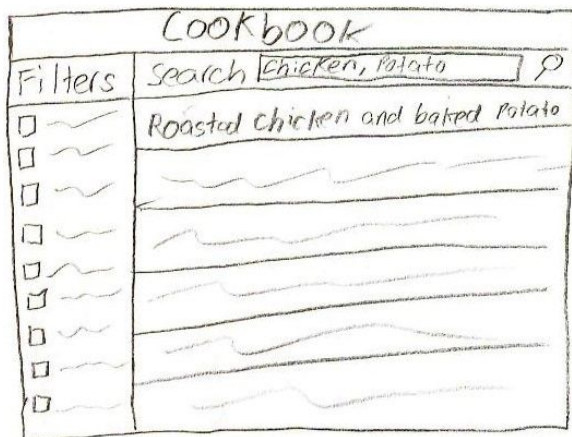 Cookbook
Filters
Search Chicken, Potato
Roasted chicken and baked Potato